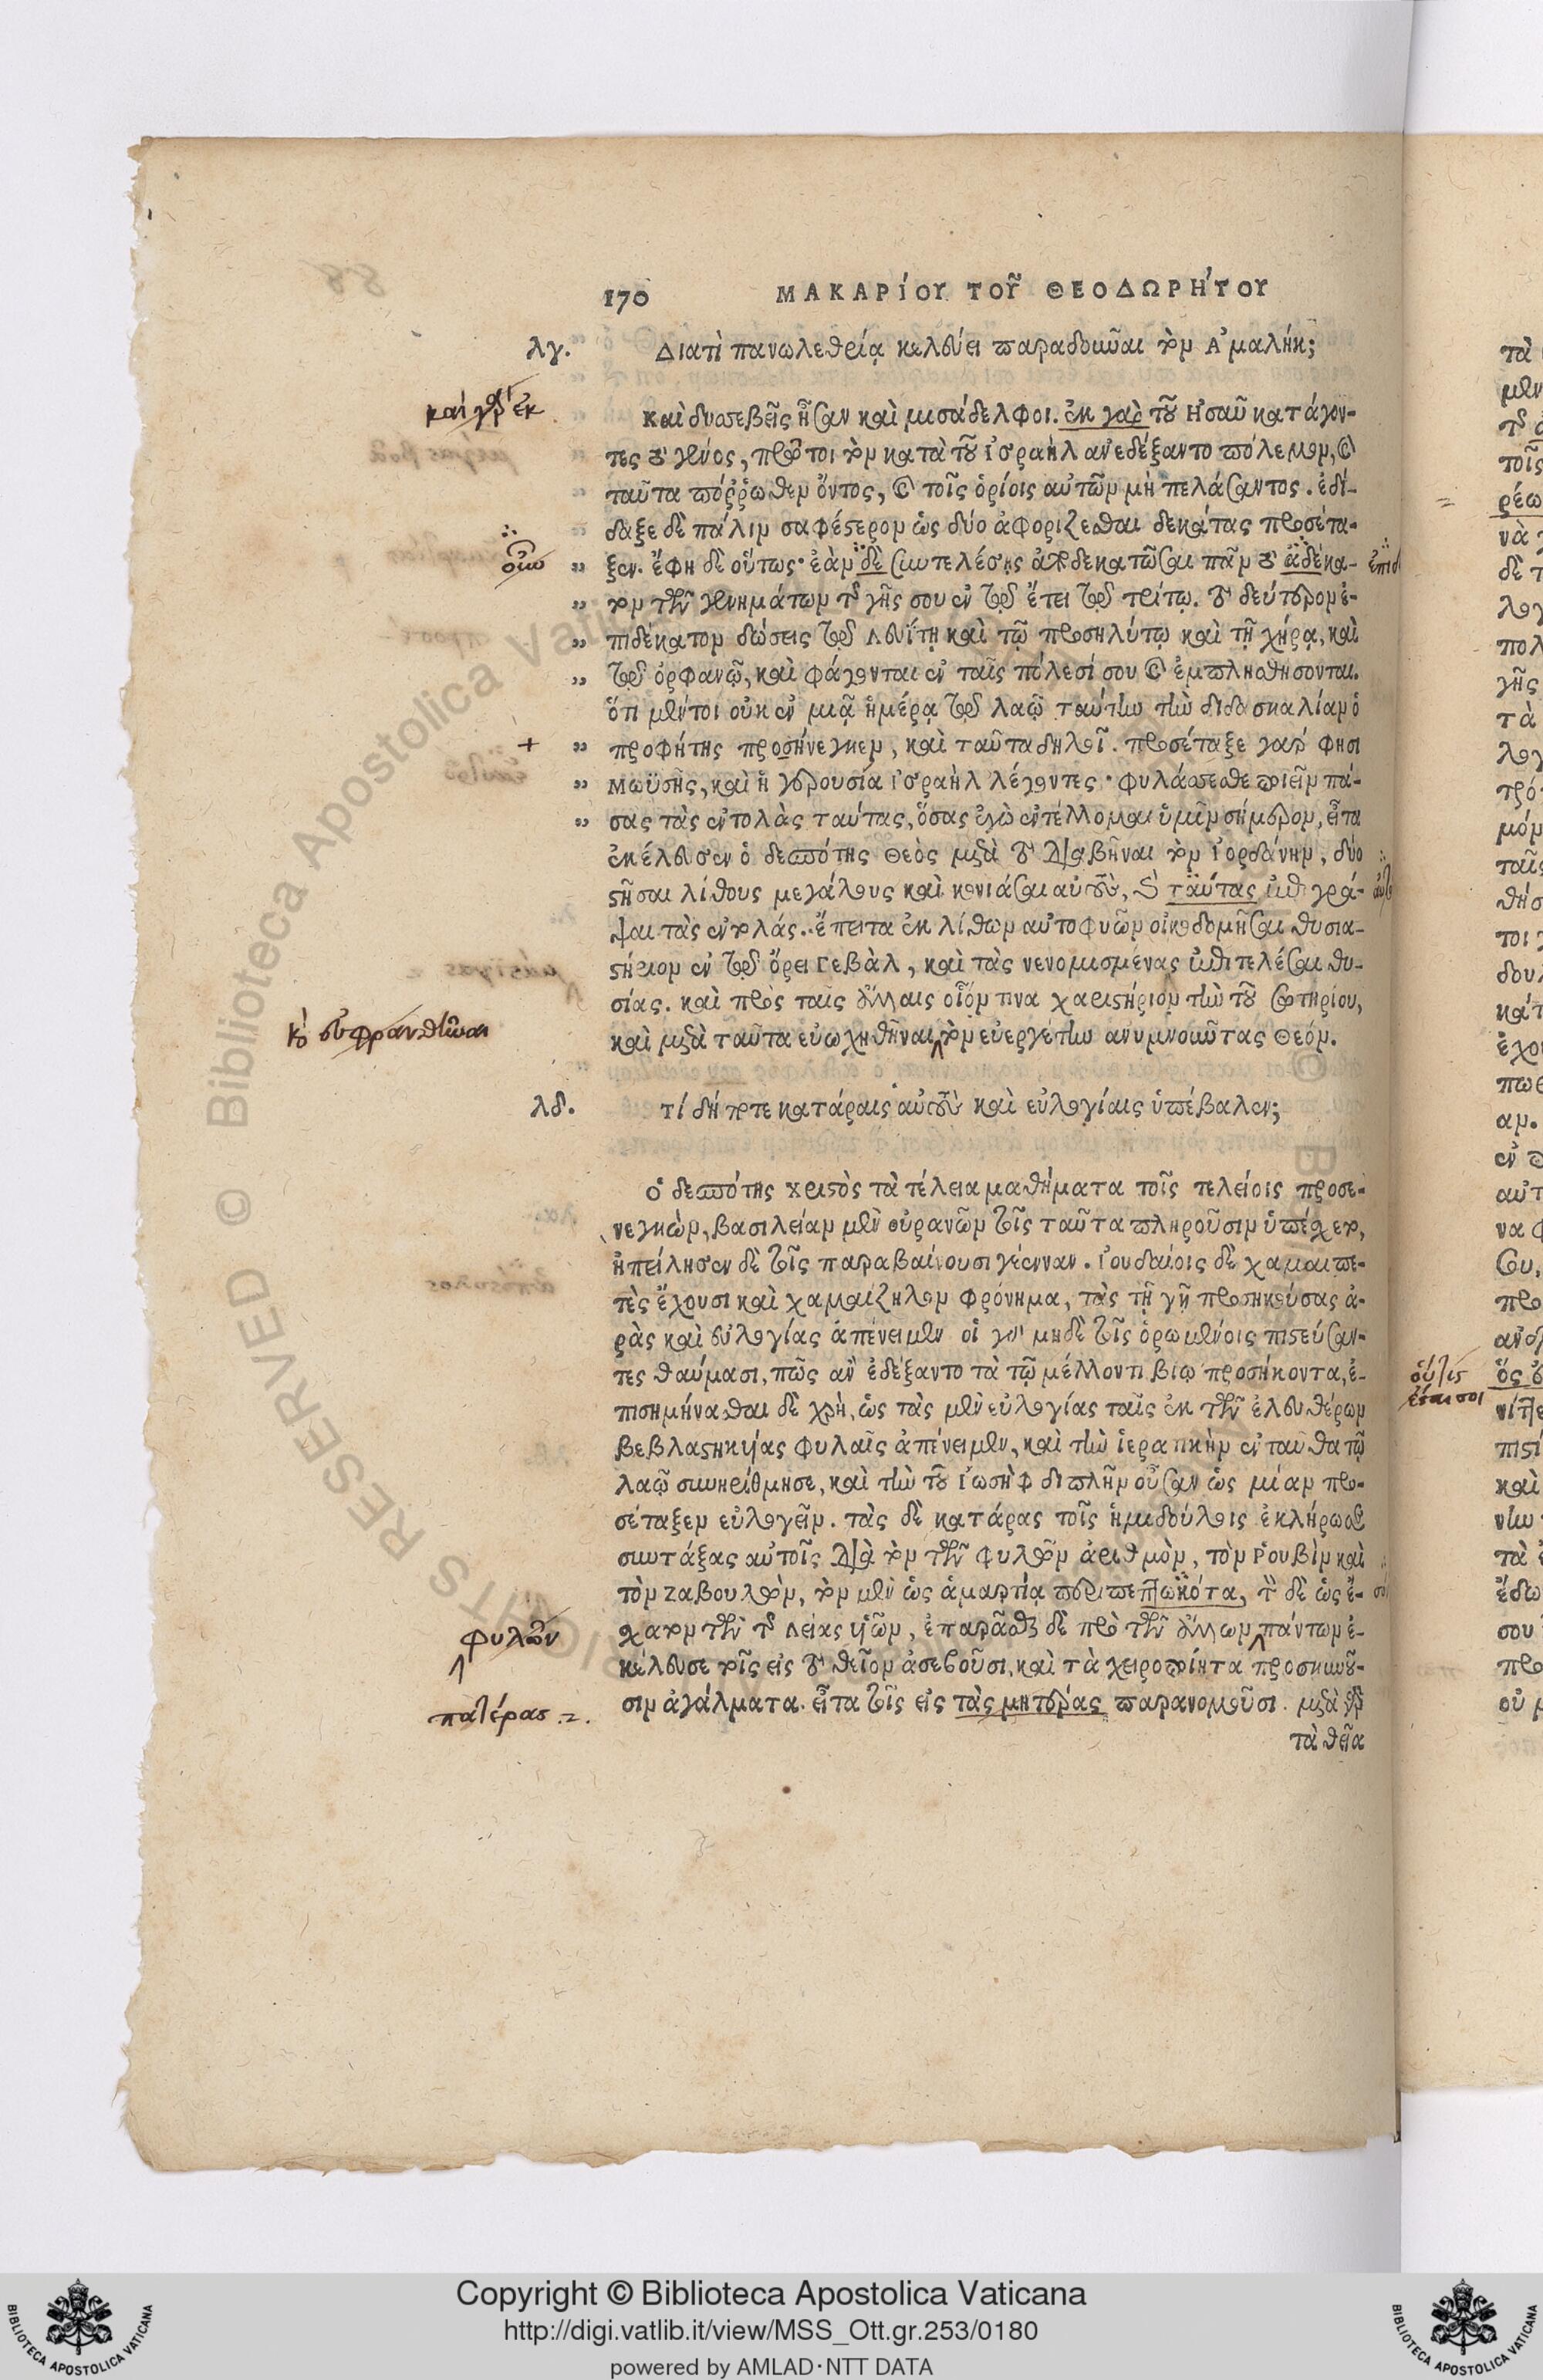 170 ΜΑΚΑΡΙΟΥ ΤΟΥ͂ ΘΕΟΔΩΡΉΤΟΥ
λγ. Διατὶ πανωλεθρίᾳ κελεύει παραδοῦναι τὸν Ἀμαλήκ;
καὶ γὰρ ἐκ
Καὶ δυσσεβεῖς ἦσαν καὶ μισάδελφοι. ἐκ γὰρ τοῦ Ἠσαῦ κατάγον-
τες τὸ γένος, πρῶτοι τὸν κατὰ τοῦ ἰσραὴλ ἀνεδέξαντο πόλεμον, καὶ
ταῦτα πόῤῥωθεν ὄντος, καὶ τοῖς ὁρίοις αὐτῶν μὴ πελάσαντος. ἐδί-
δαξε δὲ πάλιν σαφέστερον ὡς δύο ἀφορίζεσθαι δεκάτας προσέτα-
οὖν „ ξεν. ἔφη δὲ οὕτως· ἐὰν δὲ συντελέσῃς ἀποδεκατῶσαι πᾶν τὸ ἀδέκα-
„ τον τῶν γεννημάτων τῆς γῆς σου ἐν τῷ ἔτει τῷ τρίτῳ. τὸ δεύτερον ἐ-
„ πιδέκατον δώσεις τῷ λευΐτῃ καὶ τῷ προσηλύτῳ καὶ τῇ χήρᾳ, καὶ
„ τῷ ὀρφανῷ, καὶ φάγονται ἐν ταῖς πόλεσί σου καὶ ἐμπλησθήσονται.
ὅτι μέντοι οὐκ ἐν μιᾷ ἡμέρᾳ τῷ λαῷ ταύτην τὴν διδασκαλίαν ὁ
+ „ προφήτης προσήνεγκεν, καὶ ταῦτα δηλοῖ. προσέταξε γάρ φησι
„ μωϋσῆς, καὶ ἡ γερουσία ἰσραὴλ λέγοντες· φυλάσσεσθε ποιεῖν πά-
„ σας τὰς ἐντολὰς ταύτας, ὅσας ἐγὼ ἐντέλλομαι ὑμῖν σήμερον, εἶτα
ἐκέλευσεν ὁ δεσπότης Θεὸς μετὰ τὸ διαβῆναι τὸν ἰορδάνην, δύο
στῆσαι λίθους μεγάλους καὶ κονιάσαι αὐτοὺς, καὶ ταύτας ἐπιγρά-
ψαι τὰς ἐντολάς. ἔπειτα ἐκ λίθων αὐτοφυῶν οἰκοδομῆσαι θυσια-
στήριον ἐν τῷ ὄρει γεβὰλ, καὶ τὰς νενομισμένας ἐπιτελέσαι θυ-
σίας. καὶ πρὸς ταῖς ἄλλαις οἷόν τινα χαριστήριον τὴν τοῦ σωτηρίου,
κỳ εὐφρανθῆναι
καὶ μετὰ ταῦτα εὐωχηθῆναι τὸν εὐεργέτην ἀνυμνοῦντας Θεόν.
λδ. τί δήποτε κατάραις αὐτοὺς καὶ εὐλογίαις ὑπέβαλεν;
ὁ δεσπότης χριστὸς τὰ τέλεια μαθήματα τοῖς τελείοις προσε-
νεγκὼν, βασιλείαν μὲν οὐρανῶν τοῖς ταῦτα πληροῦσιν ὑπέσχετο,
ἠπείλησεν δὲ τοῖς παραβαίνουσι γέενναν. ἰουδαίοις δὲ χαμαιπε-
τὲς ἔχουσι καὶ χαμαίζηλον φρόνημα, τὰς τῇ γῇ προσηκούσας ἀ-
ρὰς καὶ εὐλογίας ἀπένειμεν οἱ γὰρ μηδὲ τοῖς ὁρωμένοις πιστεύσαν-
τες θαύμασι, πῶς ἂν ἐδέξαντο τὰ τῷ μέλλοντι βίῳ προσήκοντα, ἐ-
πισημήνασθαι δὲ χρὴ, ὡς τὰς μὲν εὐλογίας ταῖς ἐκ τῶν ἐλευθέρων
βεβλαστηκυίας φυλαῖς ἀπένειμεν, καὶ τὴν ἱερατικὴν ἐνταῦθα τῷ
λαῷ συνηρίθμησε, καὶ τὴν τοῦ ἰωσὴφ διπλῆν οὖσαν ὡς μίαν προ-
σέταξεν εὐλογεῖν. τὰς δὲ κατάρας τοῖς ἡμιδούλοις ἐκλήρωσε
συντάξας αὐτοῖς διὰ τὸν τῶν φυλῶν ἀριθμὸν, τὸν ῥουβὶν καὶ
τὸν ζαβουλὼν, τὸν μὲν ὡς ἁμαρτίᾳ περιπεπτωκότα, τὸν δὲ ὡς ἔ-
σχατον τῶν τῆς λείας υἱῶν, ἐπαρᾶσθαι δὲ πρὸ τῶν ἄλλων πάντων ἐ-
φυλῶν
κέλευσε τοῖς εἰς τὸ θεῖον ἀσεβοῦσι, καὶ τὰ χειροποίητα προσκυνοῦ-
πατέρας
σιν ἀγάλματα. εἶτα τοῖς εἰς τὰς μητέρας παρανομοῦσι. μετὰ γὰρ
τὰ θεῖα
Copyright © Biblioteca Apostolica Vaticana
http://digi.vatlib.it/view/MSS_Ott.gr.253/0180
powered by AMLAD·NTT DATA